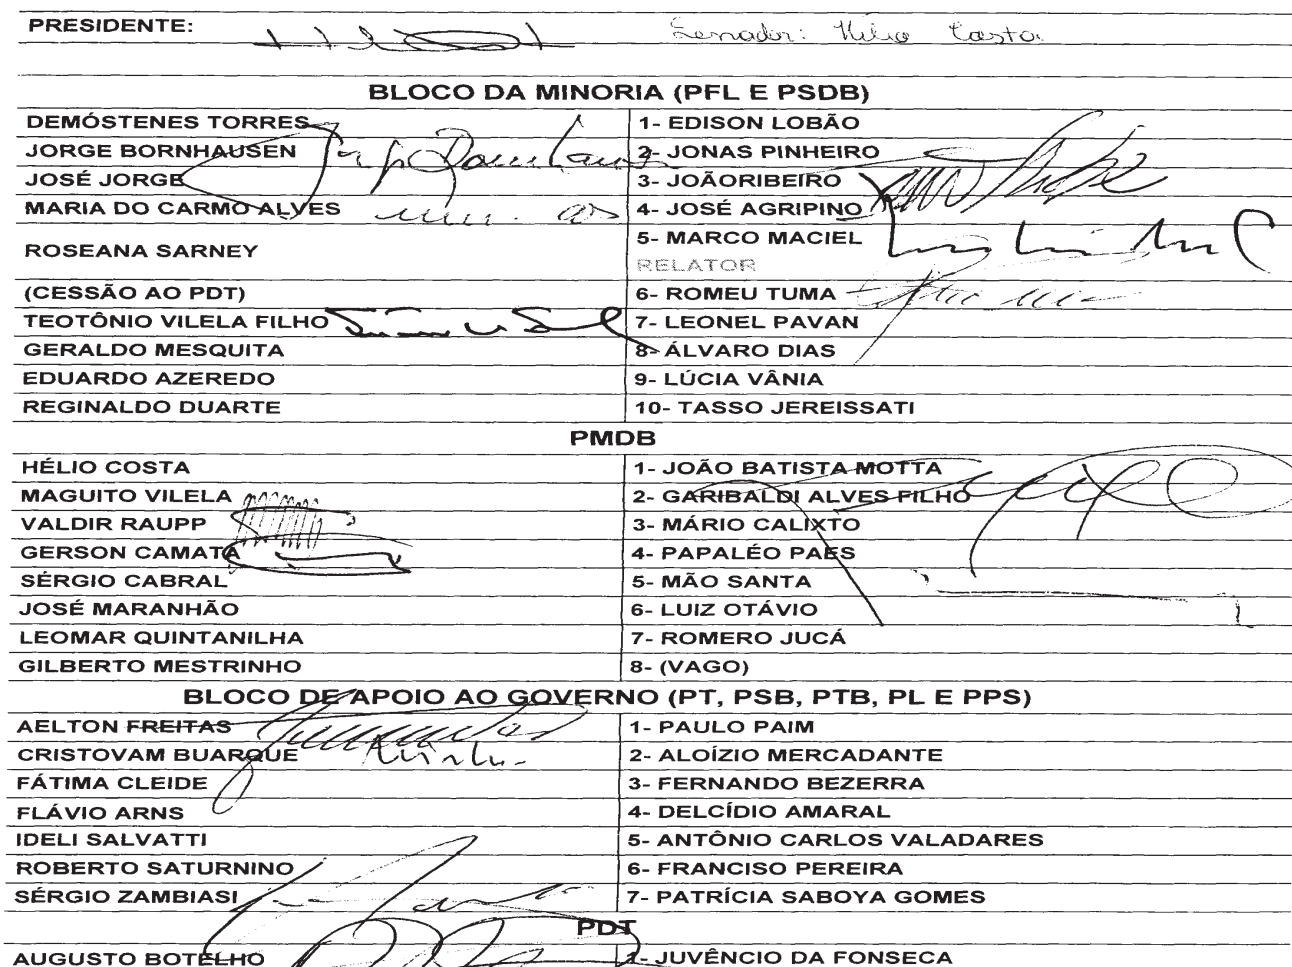 PRESIDENTE: Senador: Hélio Costa
BLOCO DA MINORIA (PFL E PSDB)
DEMÓSTENES TORRES 1- EDISON LOBÃO
JORGE BORNHAUSEN 2- JONAS PINHEIRO
JOSÉ JORGE 3- JOÃORIBEIRO
MARIA DO CARMO ALVES 4- JOSÉ AGRIPINO
ROSEANA SARNEY 5- MARCO MACIEL
RELATOR
(CESSÃO AO PDT) 6- ROMEU TUMA
TEOTÔNIO VILELA FILHO 7- LEONEL PAVAN
GERALDO MESQUITA 8- ÁLVARO DIAS
EDUARDO AZEREDO 9- LÚCIA VÂNIA
REGINALDO DUARTE 10- TASSO JEREISSATI
PMDB
HÉLIO COSTA 1- JOÃO BATISTA MOTTA
MAGUITO VILELA 2- GARIBALDI ALVES FILHO
VALDIR RAUPP 3- MÁRIO CALIXTO
GERSON CAMATA 4- PAPALÉO PAES
SÉRGIO CABRAL 5- MÃO SANTA
JOSÉ MARANHÃO 6- LUIZ OTÁVIO
LEOMAR QUINTANILHA 7- ROMERO JUCÁ
GILBERTO MESTRINHO 8- (VAGO)
BLOCO DE APOIO AO GOVERNO (PT, PSB, PTB, PL E PPS)
AELTON FREITAS 1- PAULO PAIM
CRISTOVAM BUARQUE 2- ALOÍZIO MERCADANTE
FÁTIMA CLEIDE 3- FERNANDO BEZERRA
FLÁVIO ARNS 4- DELCÍDIO AMARAL
IDELI SALVATTI 5- ANTÔNIO CARLOS VALADARES
ROBERTO SATURNINO 6- FRANCISO PEREIRA
SÉRGIO ZAMBIASI 7- PATRÍCIA SABOYA GOMES
PDT
AUGUSTO BOTELHO 1- JUVÊNCIO DA FONSECA